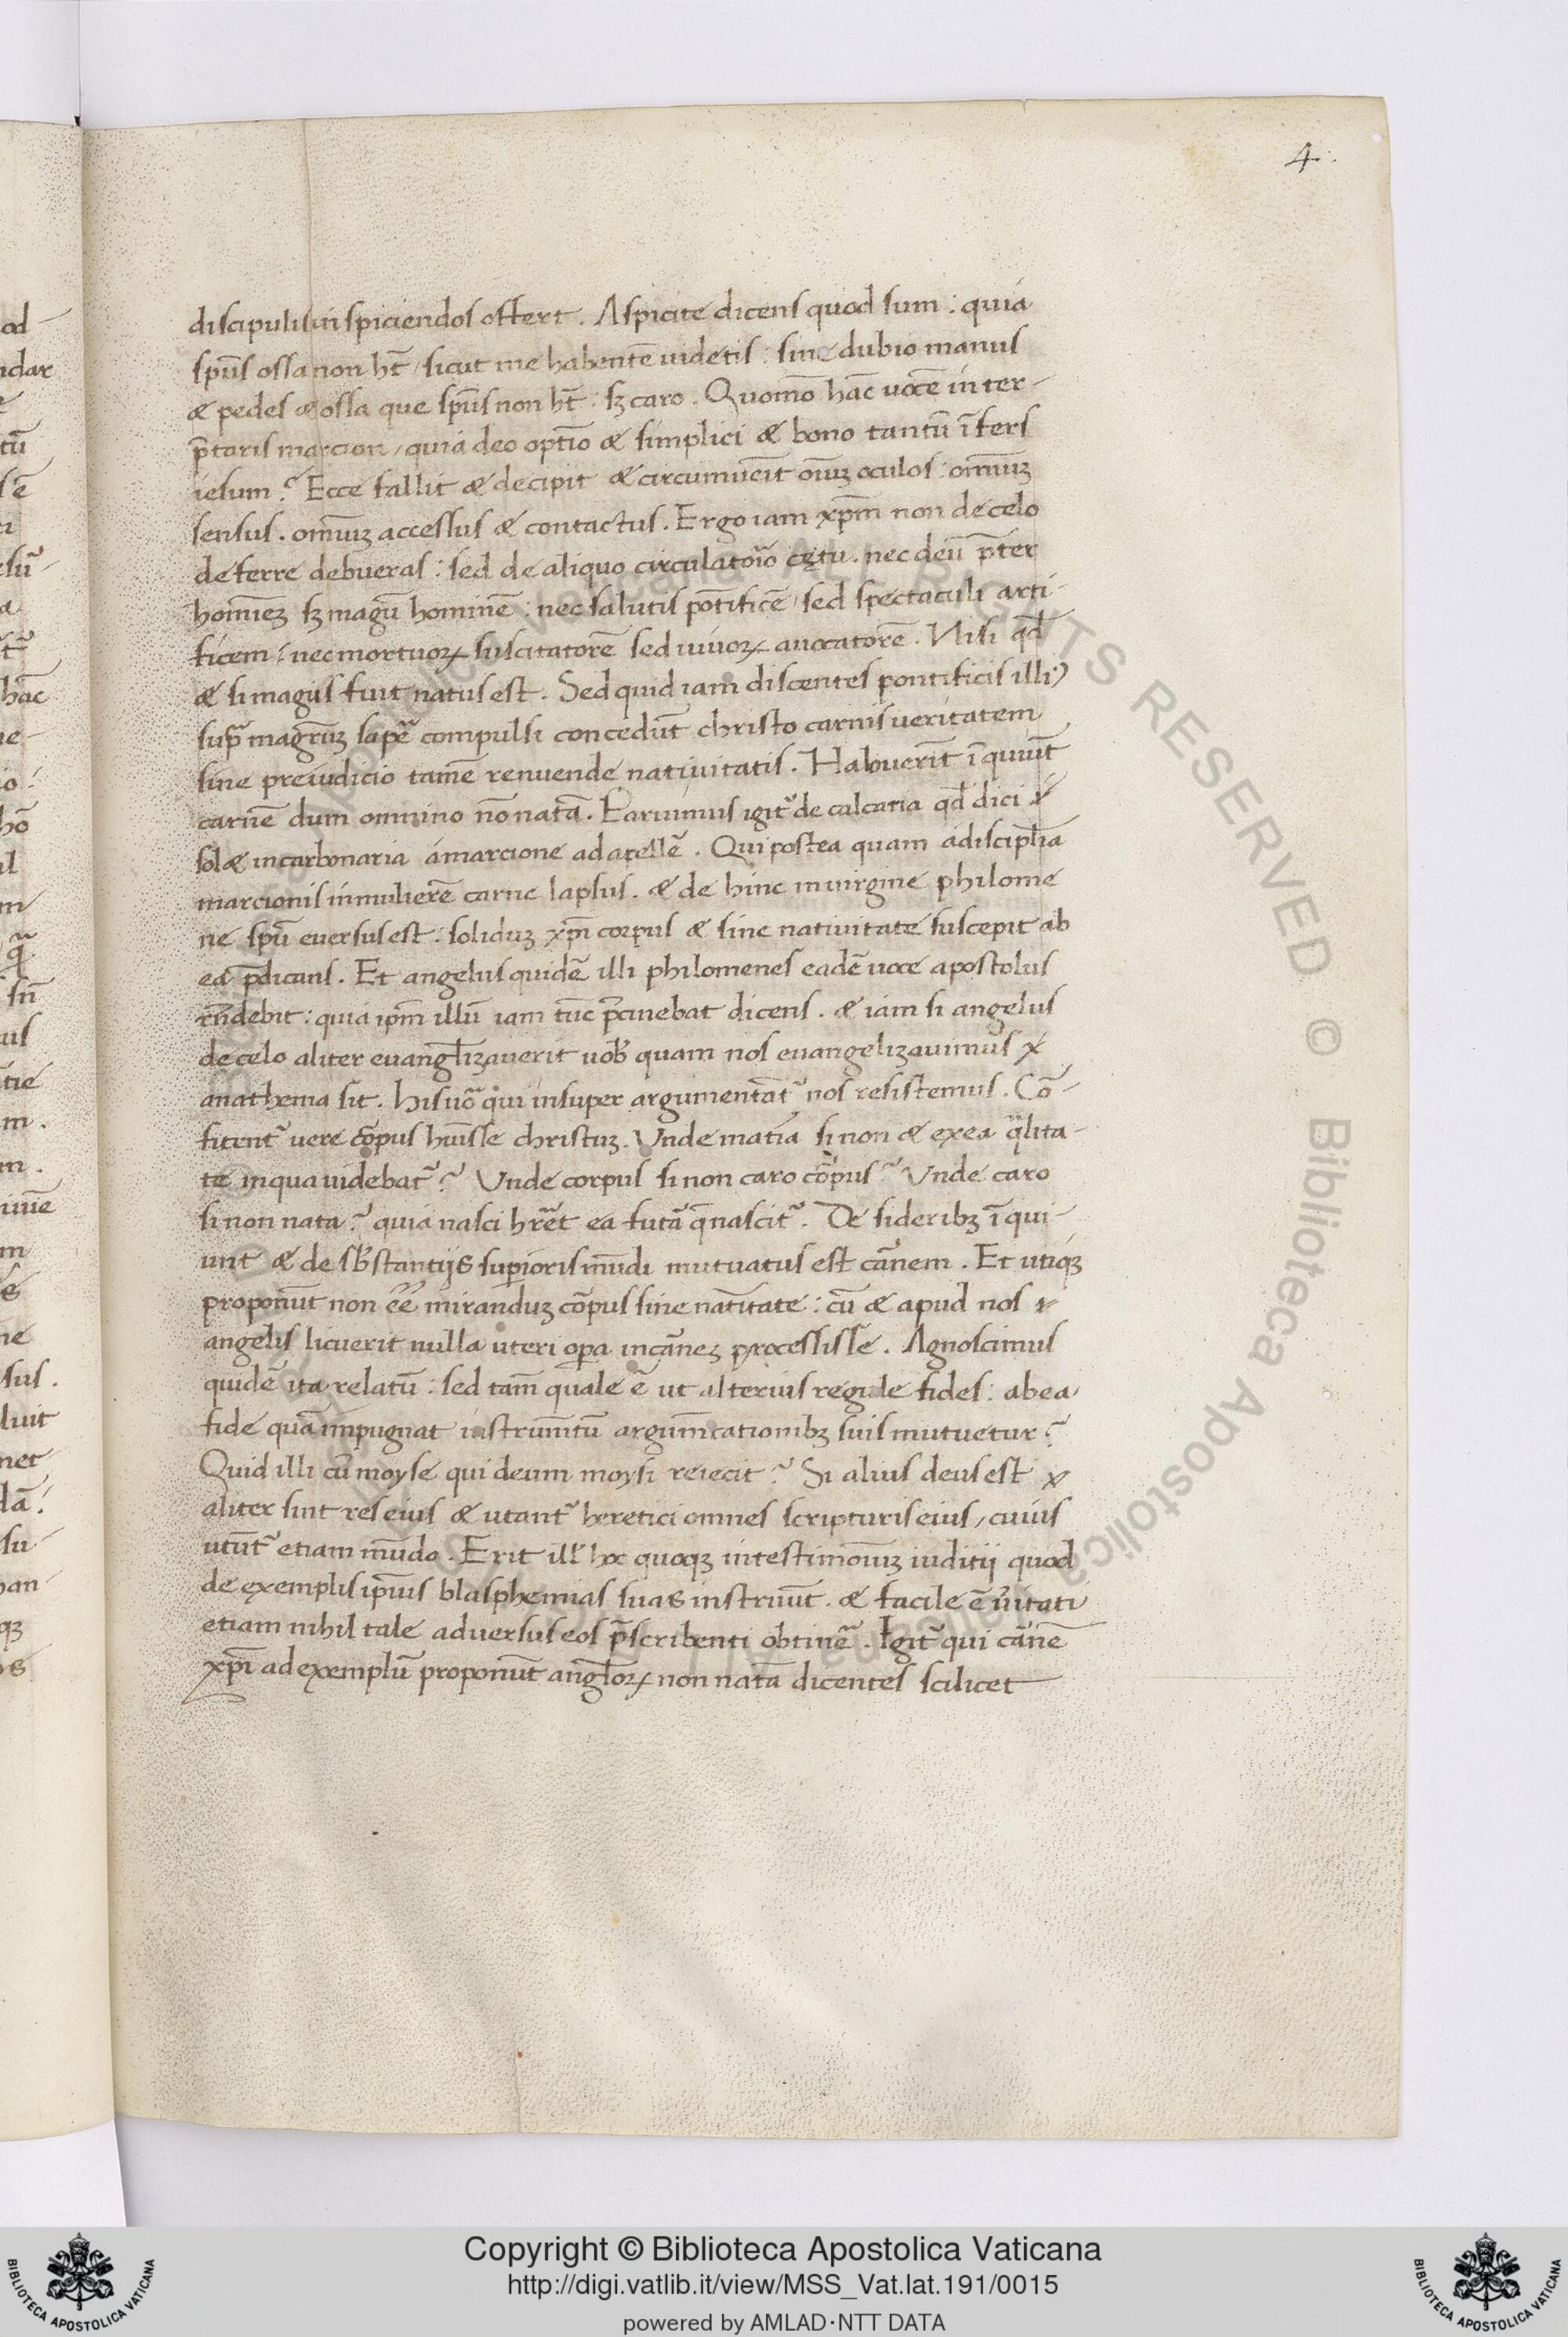 4.
discipulis inspiciendos offert. Aspicite dicens quod sum: quia
sp̄us ossa non ht̄ / sicut me habentē uidetis: sine dubio manus
& pedes & ossa que sp̄us non ht̄: sꝫ caro. Quomō hāc uocē inter-
p̄taris marcion / quia deo optīo & simplici & bono tantū īfers
iesum? Ecce fallit & decipit & circumuēit oīuꝫ oculos: omīuꝫ
sensus. omīuꝫ accessus & contactus. Ergo iam xp̄m non de celo
deferre debueras: sed de aliquo circulatorīo cętu. nec deū p̄ter
homīeꝫ sꝫ magū hominē: nec salutis pōtificē / sed spectaculi arti-
ficem: nec mortuoꝝ suscitatorē sed uiuoꝝ auocatorē. Nisi qd̄
& si magus fuit natus est. Sed quid iam discentes pontificis illiꝰ
sup̄ magr̄uꝫ sapē compulsi concedūt christo carnis ueritatem
sine preiudicio tamē renuende natiuitatis. Habuerīt īquiūt
carnē dum omnino nō natā. Peruimus igit᷑ de calcaria qd̄ dici
sol& in carbonaria a marcione ad apellē. Qui postea quam a disciplīa
marcionis in mulierē carne lapsus. & dehinc in uirgine philome
ne spū euersus est: soliduꝫ xp̄i corpus & sine natiuitate suscepit ab
ea p̄dicans. Et angelus quidē illi philomenes eadē uoce apostolus
rn̄debit: quia ip̄m illū iam tūc p̄cinebat dicens. & iam si angelus
de celo aliter euangl̄izauerit uob᷑ quam nos euangelizauimus
anathema sit. His uō qui insuper argumentāt᷑ nos resistemus. Cō-
fitent᷑ uere cōrpus hūisse christuꝫ. Vnde matīa si non & ex ea q̄lita-
te in qua uidebat᷑? Vnde corpus si non caro cōrpus? Vnde caro
si non nata? quia nasci hr̄et ea futā q̄ nascit᷑. De sideribꝫ īqui-
unt & de sb̄stantijs superioris mūdi mutuatus est cārnem. Et utiqꝫ
proponūt non eē miranduꝫ cōrpus sine natīitate: cū & apud nos
angelis licuerit nulla uteri opera in cārneꝫ processisse. Agnoscimus
quidē ita relatū: sed tam̄ quale ē ut alterius regule fides: ab ea
fide quā impugnat instrumtū argum̄tationibꝫ suis mutuetur?
Quid illi cū moyse qui deum moysi reiecit? Si alius deus est
aliter sint res eius & utant᷑ heretici omnes scripturis eius, cuius
utūt᷑ etiam mūdo. Erit ill᷑ hoc quoqꝫ in testimoniuꝫ iuditij quod
de exemplis ip̄ius blasphemias suas instruūt. & facile ē uītati
etiam nihil tale aduersus eos p̄scribenti obtinē. Igit᷑ qui cārnē
xp̄i ad exemplū proponūt angl̄oꝝ non natā dicentes scilicet
Copyright © Biblioteca Apostolica Vaticana
http://digi.vatlib.it/view/MSS_Vat.lat.191/0015
powered by AMLAD·NTT DATA